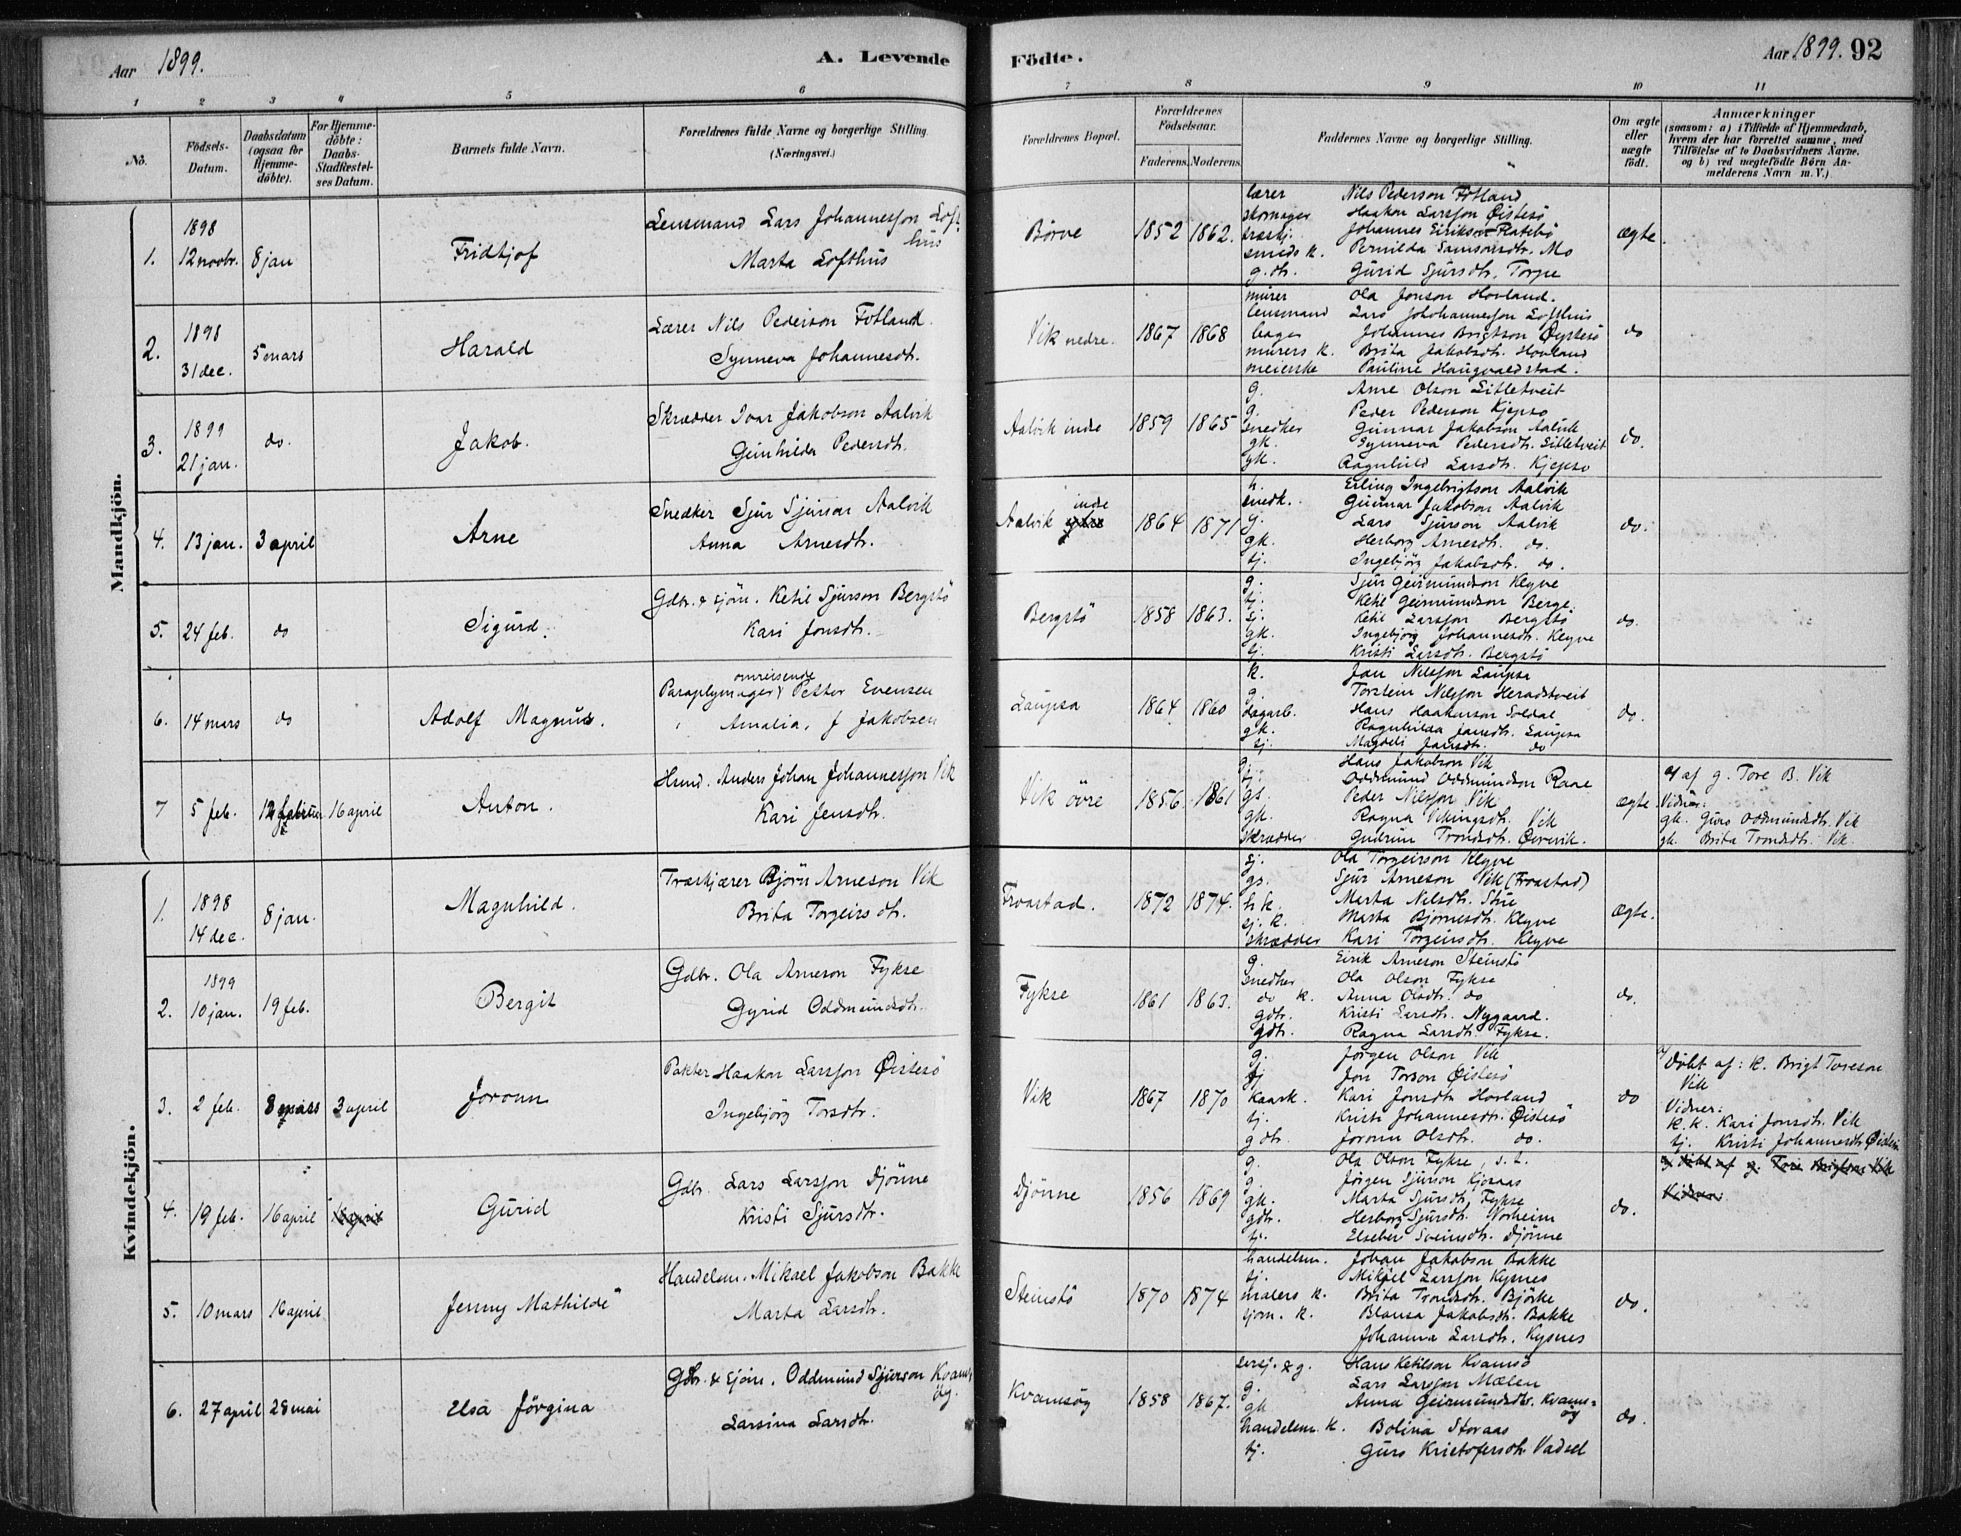 Aar 1899.
A. Levende
Födte.
Aar 1899. 92
1 2 3 4 5 6 7 8 9 10 11
No.
Födsels-
Datum.
Daabsdatum
(ogsaa for
Hjemme-
döbte).
For Hjemme-
döbte:
Daabs-
Stadfæstel-
ses Datum.
Barnets fulde Navn.
Forældrenes fulde Navne og borgerlige Stilling.
(Næringsvei.)
Forældrenes Bopæl.
Forældrenes
Födselsaar.
Faderens. Moderens.
Faddernes Navne og borgerlige Stilling.
Om ægte
eller
uægte
födt.
Anmærkninger
(saasom: a) i Tilfælde af Hjemmedaab,
hvem der har forrettet samme, med
Tilföielse af to Daabsvidners Navne,
og b) ved uægtefödte Börn An-
melderens Navn m. V.)
Mandkjön.
1. 1898 12 novbr. 8 jan Fridtjof
Lensmand Lars Johannesson Loft-
hus
Marta Lofthus
Børve 1852 1862.
lærer Nils Pederson Fotland
skomager Haakon Larsson Øistesö
træskj. Johannes Eirikson Flatebö
smeds k. Pernilda Samsonsdtr. Mo
g. dtr. Gurid Sjursdtr. Torpe
ægte.
2. 1898 31 dec. 5 mars Harald
Lærer Nils Pederson Fotland.
Synneva Johannesdtr.
Vik nedre. 1867 1868
murer Ola Jonson Hovland.
lensmand Lars Johohannesson Lofthus
bager Johannes Brigtson Øystesö
murers k. Brita Jakobsdtr. Hovland
meierske Pauline Haugvaldstad.
do
3. 1899 21 jan. do. Jakob.
Skrædder Ivar Jakobson Aalvik
Gunhilda Pedersdtr.
Aalvik indre 1859 1865
g. Arne Olson Litletveit
g. Peder Pederson Kjepso
snedker Gunnar Jakobson Aalvik
gk. Synneva Pedersdtr. Litletveit
gk. Ragnhild Larsdtr. Kjepso
do.
4. 13 jan. 3 april Arne
Snedker Sjur Sjurson Aalvik
Anna Arnesdtr.
indre
Aalvik ytre 1864 1871
h. Erling Ingebrigtson Aalvik
snedk. Gunnar Jakobson Aalvik
g. Lars Sjurson Aalvik
gk. Herborg Arnesdtr. do.
tj. Ingebjörg Jakobsdtr. do.
do.
5. 24 feb. do Sigurd.
Gdbr. & sjöm. Ketil Sjurson Bergstö
Kari Jonsdtr.
Bergstö 1858 1863.
g. Sjur Geirmundson Klyve
tj. Ketil Geirmundson Berge.
sj. Ketil Larsson Bergstö
gk. Ingebjörg Johannesdtr. Klyve
tj. Kristi Larsdtr. Bergstö
do.
6. 14 mars do Adolf Magnus.
omreisende
Paraplymager Petter Evensen
Amalia, f Jakobsen
Laupsa 1864 1860
k. Jan Nilsson Laupsa
g. Torstein Nilsson Heradstveit
dagarb. Hans Haakonson Soldal
gk. Ragnhilda Jansdtr. Laupsa
tj. Magdeli Jansdtr. do
do.
7 5 feb. 12 februar 16 april Anton.
Husmd. Anders Johan Johannesson Vik
Kari Jensdtr.
Vik övre 1856 1861
g. Hans Jakobson Vik
tj. Oddmund Oddmundson Raae
gs. Peder Nilsson Vik
gk. Ragna Vikingsdtr. Vik
skrædder Gudrun Trondsdtr. Övrevik.
ægte.
a/ af g. Tore B. Vik
Vidner:
gk. Guro Oddmundsdtr. Vik
gk. Brita Trondsdtr. Vik.
Kvindekjön.
1. 1898 14 dec. 8 jan. Magnhild.
Træskjærer Björn Arneson Vik
Brita Torgeirsdtr.
Froastad. 1872 1874.
sj. Ola Torgeirson Klyve
gs. Sjur Arneson Vik (Froastad)
h k. Marta Nilsdtr. Stue
sj. k. Marta Bjornesdtr. Klyve
skrædder Kari Torgeirsdtr. Klyve
ægte.
2. 1899 10 jan. 19 feb. Bergit
Gdbr. Ola Arneson Fykse
Gyrid Oddmundsdtr.
Fykse 1861 1863.
g. Eirik Arneson Steinstö
snedker Ola Olson Fykse
do k. Anna Olsdtr. do
gdtr. Kristi Larsdtr. Nygaard.
gdtr. Ragna Larsdtr. Fykse.
do.
3. 2 feb. 8 mars 3 april Jorunn
Pakter Haakon Larsson Øistesö
Ingebjörg Torsdtr.
Vik 1867 1870
g. Jörgen Olson Vik
tj Jon Torson Øistesö
kaark. Kari Jonsdtr. Hovland
tj. Kristi Johannesdtr. Øistesö
gdtr. Jorunn Olsdtr. do.
do
a/ Döbt af: k. Brigt Toreson
Vik
Vidner:
k.k. Kari Jonsdtr. Vik
tj. Kristi Johannesdtr. Øistesö
4. 19 feb. 16 april 16 april Gurid
Gdbr. Lars Larsson Djönne
Kristi Sjursdtr.
Djönne 1856 1869
g. Ola Olson Fykse, s. t.
g. Jörgen Sjurson Kjosaas
gk. Marta Sjursdtr. Fykse
gdtr. Herborg Sjursdtr. Norheim
tj. Elseber Sveinsdtr. Djönne
do.
a/ döbt af g. Tore Brigtson Vik
Vidner:
5. 10 mars 16 april Jenny Mathilde
Handelsm. Mikael Jakobson Bakke
Marta Larsdtr.
Steinstö 1870 1874
handelsm. Johan Jakobson Bakke
tj. Mikjel Larsson Kysnes
malers k. Brita Trondsdtr. Björke
sjom. k. Blansa Jakobsdtr. Bakke
Johanna Larsdtr. Kysnes
do.
6. 27 april 28 mai Elsa Jörgina
Gdbr. & sjöm. Oddmund Sjurson Kvams-
öy.
Larsina Larsdtr.
Kvamsöy 1858 1867.
sersj. & g. Hans Ketilson Kvamsö
g. Lars Larsson Mælen
gk Anna Geirmundsdtr. Kvams-
öy
handelsm. k. Bolina Storaas
tj. Guro Kristofersdtr. Vadsel
do.